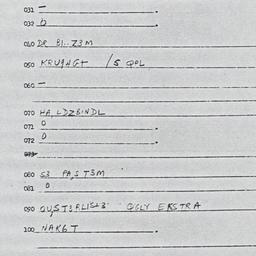 031 –
032 0
040 DR BI..Z3M
050 KRU4HG+ /S QOL
060 –
070 HA,LDZBINDL
071 0
072 0
080 S3 PA,ST3M
081 0
090 QU,ST3RLIS+3 QGLY EKSTRA
100 NAK6T